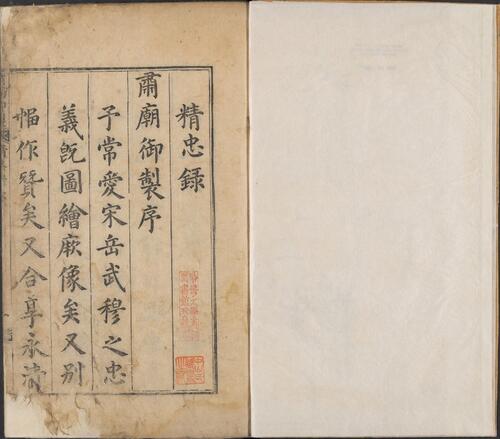 精忠錄
肅廟御製序
予常愛宋岳武穆之忠
義旣圖繪厥像矣又別
幅作贊矣又合享永浦